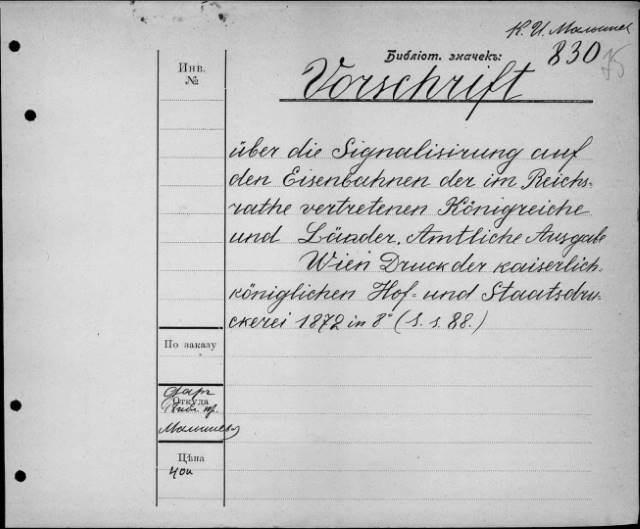 К. И. Малышев
Библіот. значекъ:
830
75
Инв.
№
Vorschrift
über die Signalisirung auf
den Eisenbahnen der im Reichs-
rathe vertretenen Königreiche
und Länder. Amtliche Ausgabe
Wien Druck der kaiserlich-
königlichen Hof- und Staatsdru-
ckerei 1872 in 8° (S. s. 88.)
По заказу
Откуда
даръ
Малышева
Цѣна
40к